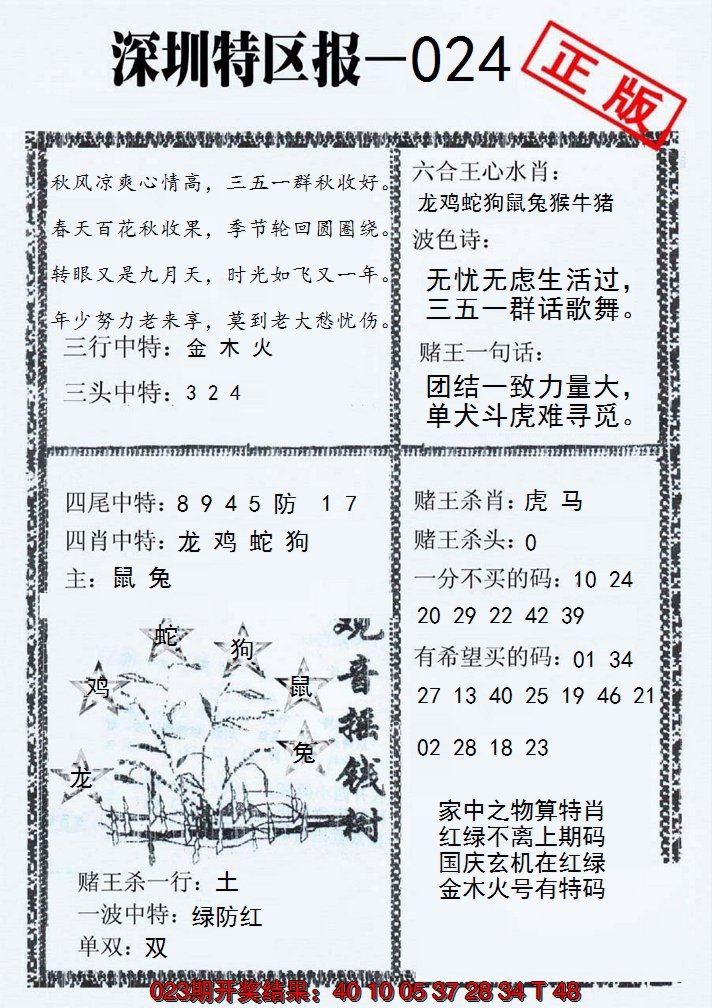 深圳特区报—024
正版
秋风凉爽心情高，三五一群秋收好。
春天百花秋收果，季节轮回圆圈绕。
转眼又是九月天，时光如飞又一年。
年少努力老来享，莫到老大愁忧伤。
三行中特：金 木 火
三头中特：3 2 4
六合王心水肖：
龙鸡蛇狗鼠兔猴牛猪
波色诗：
无忧无虑生活过，
三五一群话歌舞。
赌王一句话：
团结一致力量大，
单犬斗虎难寻觅。
四尾中特：8 9 4 5 防 1 7
四肖中特：龙 鸡 蛇 狗
主：鼠 兔
蛇
狗
鸡
鼠
兔
龙
观音摇钱树
赌王杀一行：土
一波中特：绿防红
单双：双
赌王杀肖：虎 马
赌王杀头：0
一分不买的码：10 24
20 29 22 42 39
有希望买的码：01 34
27 13 40 25 19 46 21
02 28 18 23
家中之物算特肖
红绿不离上期码
国庆玄机在红绿
金木火号有特码
023期开奖结果：40 10 05 37 28 34 T 48